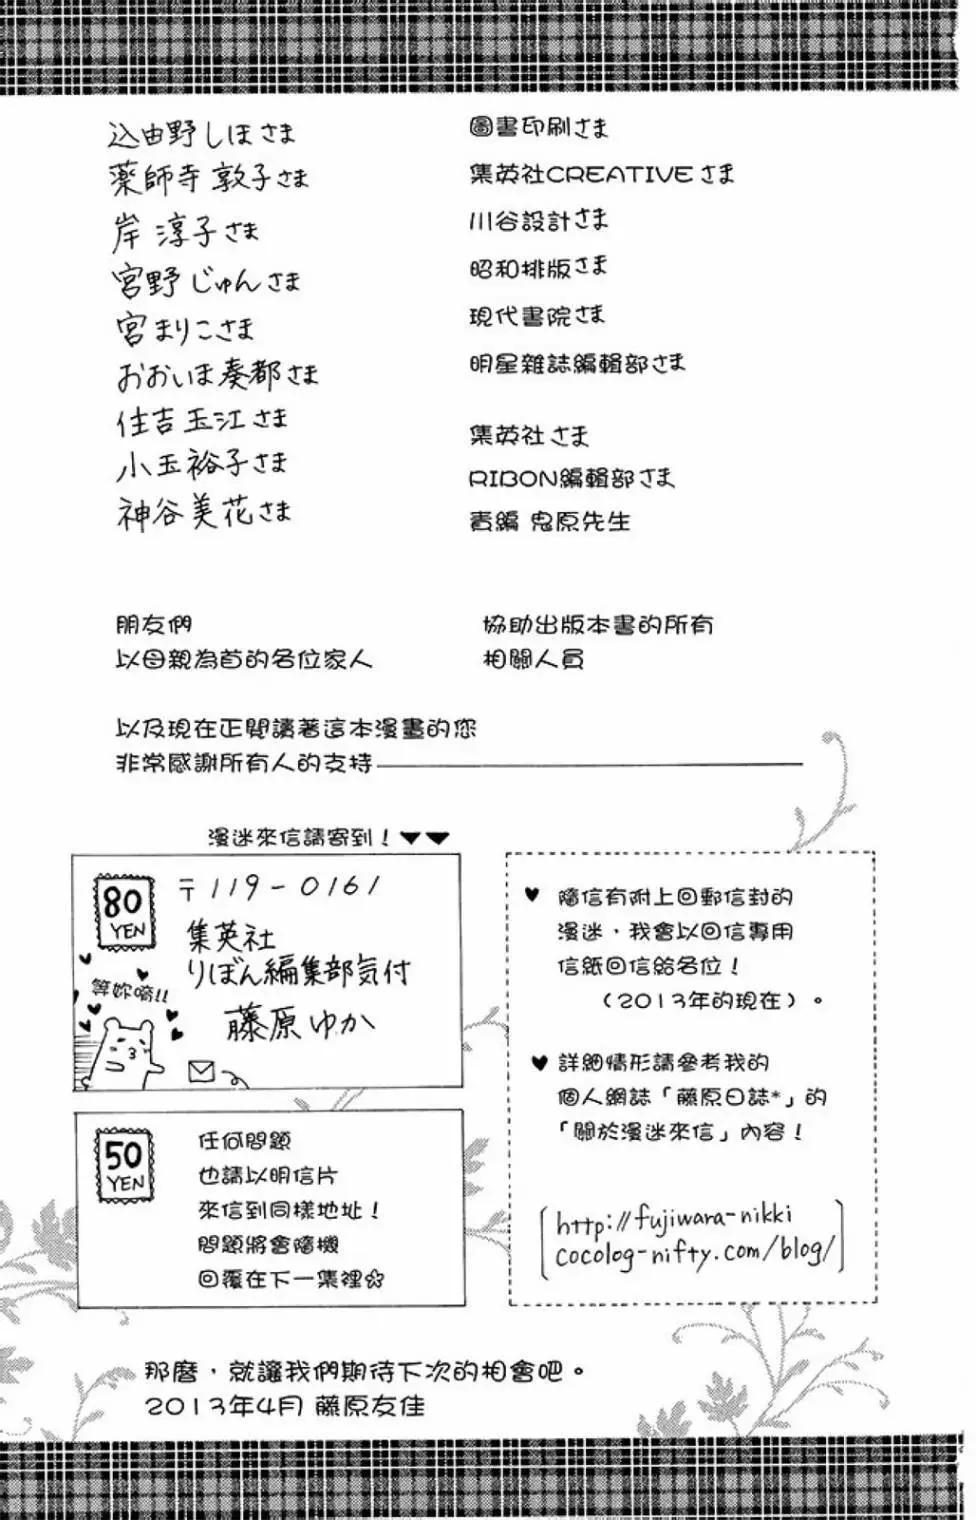 込由野しほさま
薬師寺 敦子さま
岸 淳子さま
宮野じゅんさま
宮まりこさま
おおいま奏都さま
住吉玉江さま
小玉裕子さま
神谷美花さま
圖書印刷さま
集英社CREATIVEさま
川谷設計さま
昭和排版さま
現代書院さま
明星雜誌編輯部さま
集英社さま
RIBON編輯部さま
責編 鬼原先生
朋友們
以母親為首的各位家人
協助出版本書的所有
相關人員
以及現在正閱讀著這本漫畫的您
非常感謝所有人的支持
漫迷來信請寄到！♥♥
80
YEN
〒119-0161
集英社
りぼん編集部気付
藤原ゆか
等妳唷!!
50
YEN
任何問題
也請以明信片
來信到同樣地址！
問題將會隨機
回覆在下一集裡
♥ 隨信有附上回郵信封的
漫迷，我會以回信專用
信紙回信給各位！
（2013年的現在）。
♥ 詳細情形請參考我的
個人網誌「藤原日誌*」的
「關於漫迷來信」內容！
http://fujiwara-nikki
cocolog-nifty.com/blog/
那麼，就讓我們期待下次的相會吧。
2013年4月 藤原友佳